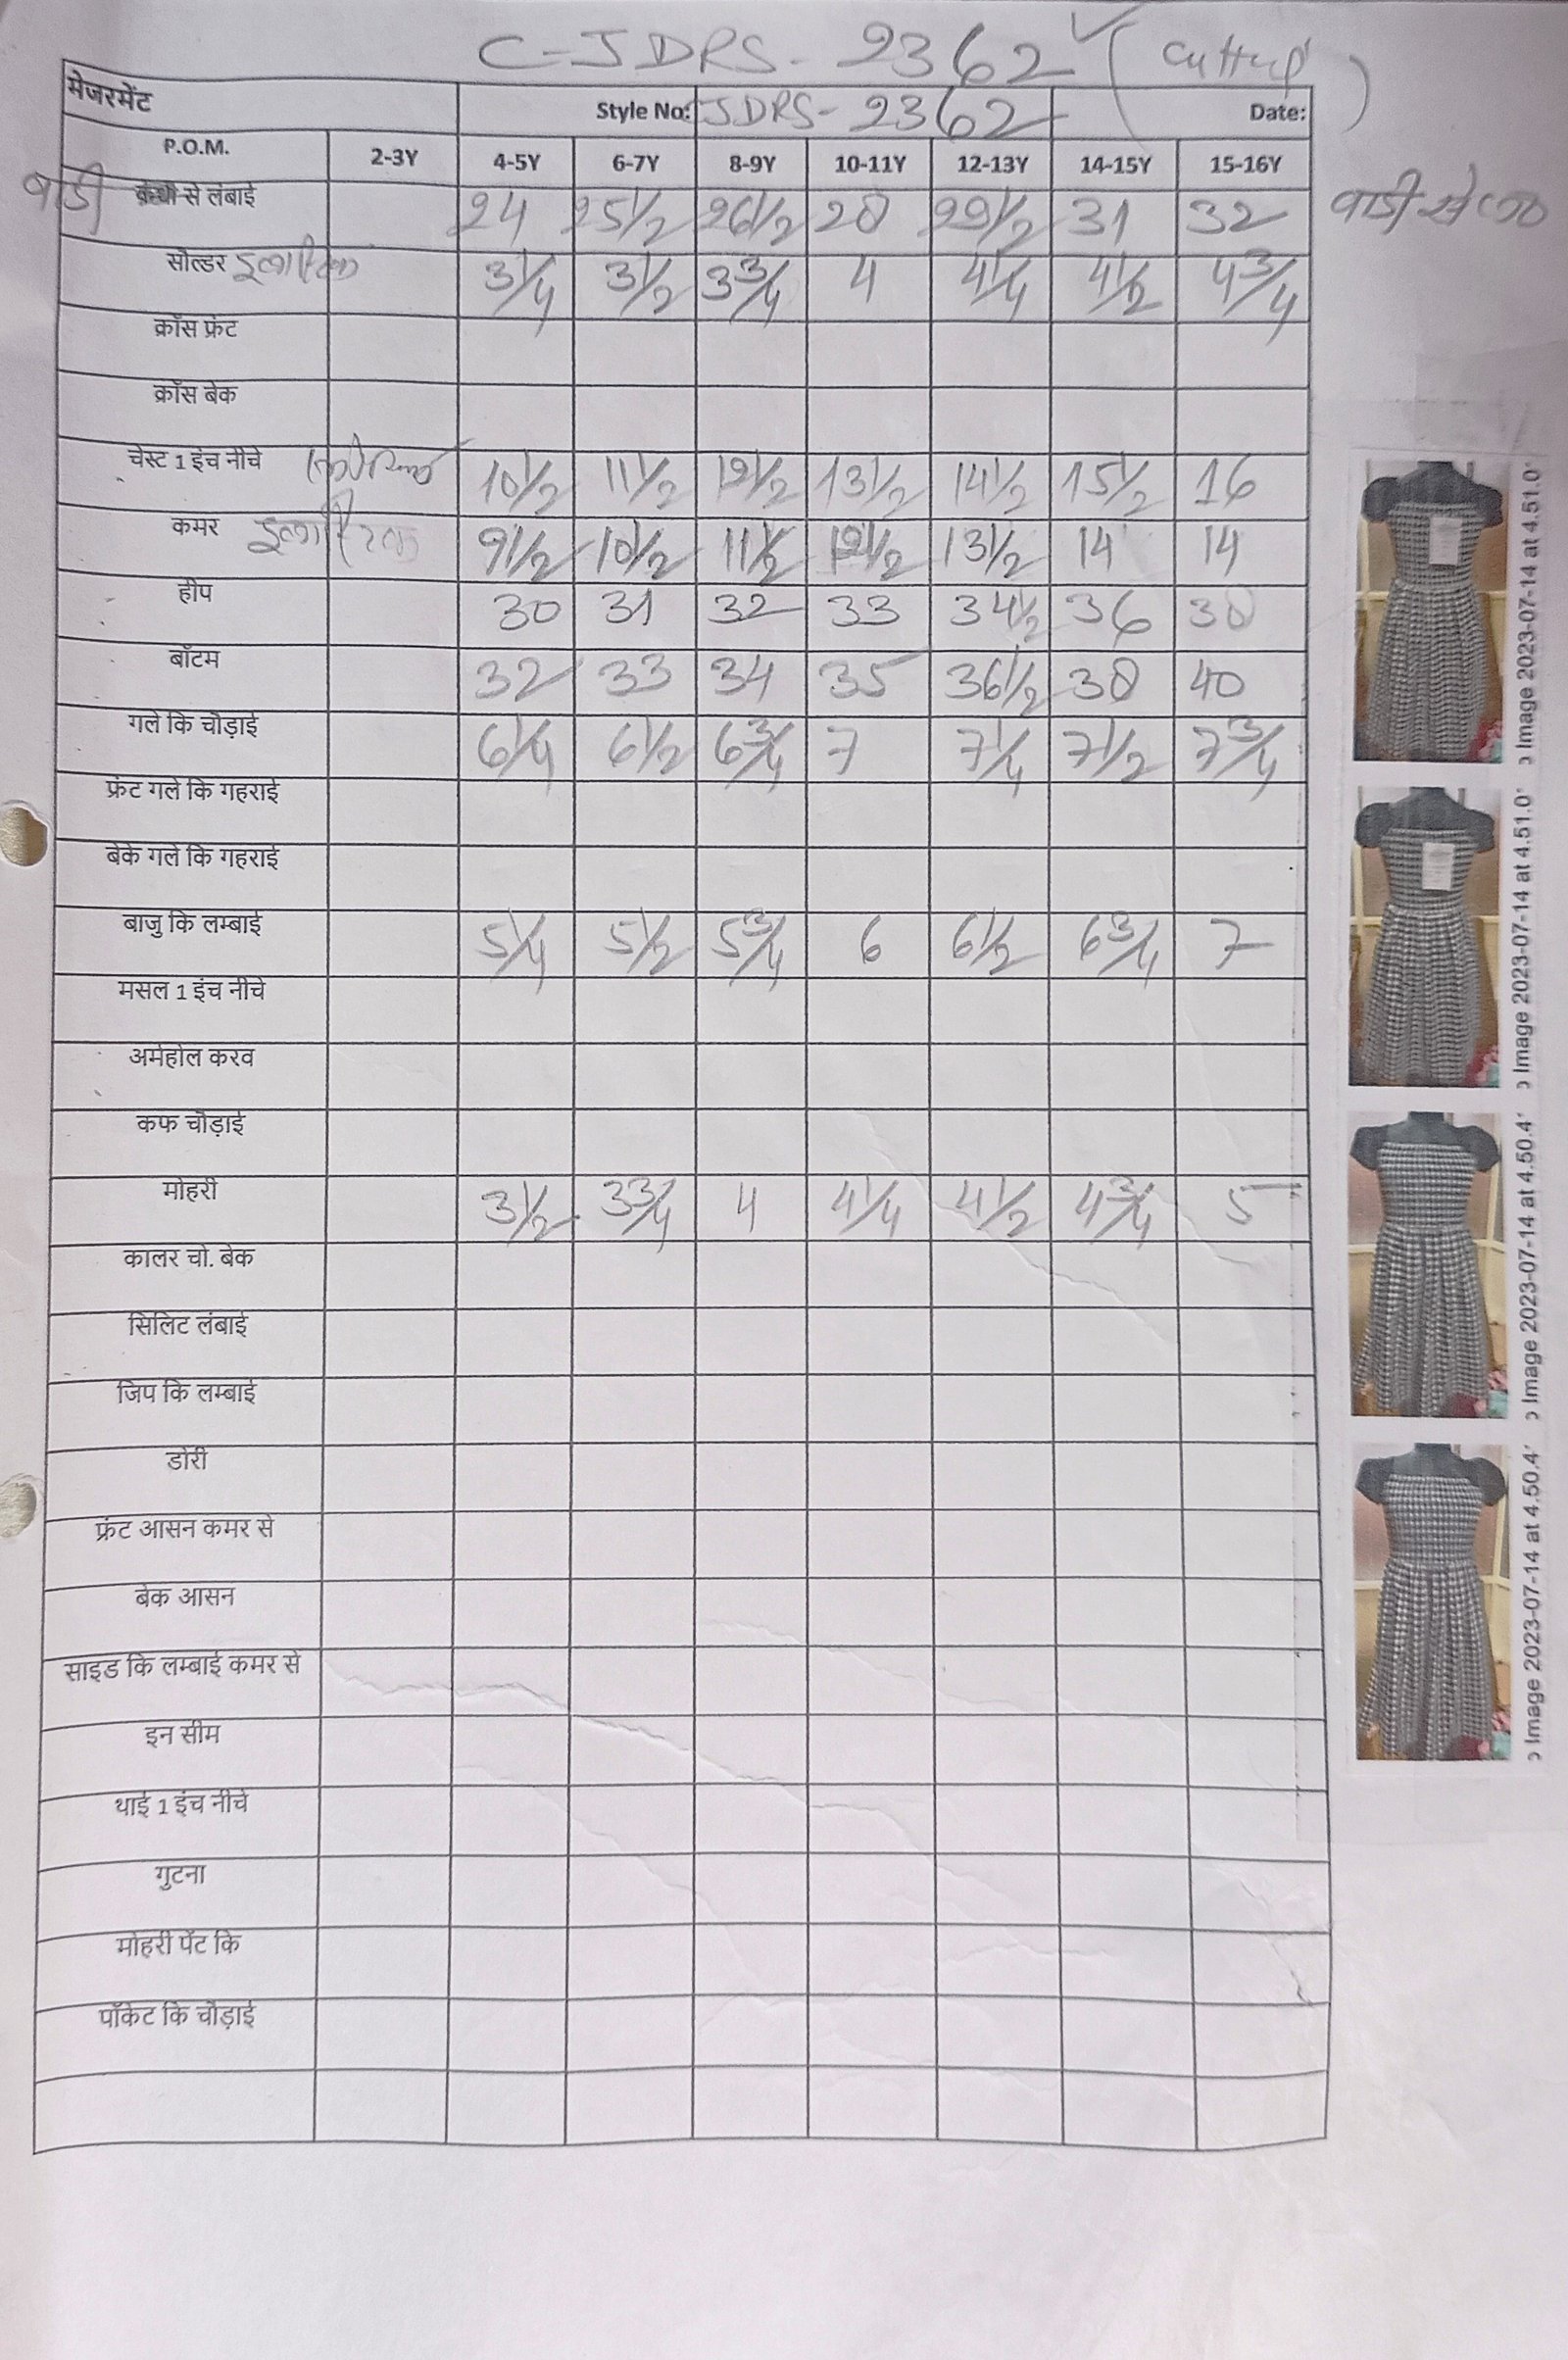 C-JDRS-2362 (Cutting)
मेजरमेंट Style No: JDRS-2362 Date:
P.O.M. 2-3Y 4-5Y 6-7Y 8-9Y 10-11Y 12-13Y 14-15Y 15-16Y
बाडी से लंबाई 24 25½ 26½ 28 29½ 31 32 बाडी से
सोल्डर इलास्टिक 3¼ 3½ 3¾ 4 4¼ 4½ 4¾
क्रॉस फ्रंट
क्रॉस बेक
चेस्ट 1 इंच नीचे 10½ 11½ 12½ 13½ 14½ 15½ 16
कमर इलास्टिक 9½ 10½ 11½ 12½ 13½ 14 14
हीप 30 31 32 33 34½ 36 38
बॉटम 32 33 34 35 36½ 38 40
गले कि चौड़ाई 6¼ 6½ 6¾ 7 7¼ 7½ 7¾
फ्रंट गले कि गहराई
बेक गले कि गहराई
बाजु कि लम्बाई 5¼ 5½ 5¾ 6 6½ 6¾ 7
मसल 1 इंच नीचे
अर्महोल करव
कफ चौड़ाई
मोहरी 3½ 3¾ 4 4¼ 4½ 4¾ 5
कालर चो. बेक
सिलिट लंबाई
जिप कि लम्बाई
डोरी
फ्रंट आसन कमर से
बेक आसन
साइड कि लम्बाई कमर से
इन सीम
थाई 1 इंच नीचे
गुटना
मोहरी पेंट कि
पॉकेट कि चौड़ाई
Image 2023-07-14 at 4.51.0
Image 2023-07-14 at 4.51.0
Image 2023-07-14 at 4.50.4
Image 2023-07-14 at 4.50.4